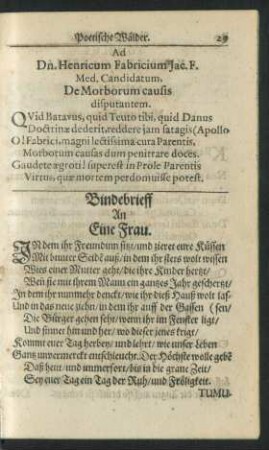 Poetische Wälder. 29
Ad
Dn. Henricum Fabricium Jac. F.
Med. Candidatum.
De Morborum causis
disputantem.
QVid Batavus, quid Teuto tibi, quid Danus
Doctrinæ dederit, reddere jam satagis (Apollo
O! Fabrici, magni lectissima cura Parentis,
Morborum causas dum penitrare doces.
Gaudete ægroti! superest in Prole Parentis
Virtus, quæ mortem perdomuisse potest.
Bindebrieff
An
Eine Frau.
INdem ihr Freundinn sitz/ und zieret eure Küssen
Mit bunter Seid' auß/ in dem ihr stets wolt wissen
Wies einer Mutter geht/ die ihre Kinder hertzt/
Wen sie mit ihrem Mann ein gantzes Jahr geschertzt/
In dem ihr nunmehr denckt/ wie ihr dieß Hauß wolt las-
Und in das neue ziehn/ in dem ihr auff der Gassen (sen/
Die Bürger gehen seht/ wenn ihr im Fenster ligt/
Und sinnet hin und her/ wo dieser jenes krigt/
Kommt euer Tag herbey/ und lehrt/ wie unser Leben
Gantz unvermerckt entschleucht. Der Höchste wolle gebē
Daß heut/ und immerfort/ bis in die grane Zeit/
Sey euer Tag ein Tag der Ruh/ und Fröligkeit.
TUMU-